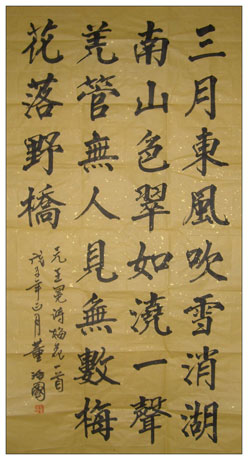 三月東風吹雪消湖
南山色翠如澆一聲
羌管無人見無數梅
花落野橋
元王冕詩梅花一首
戊子年正月董國